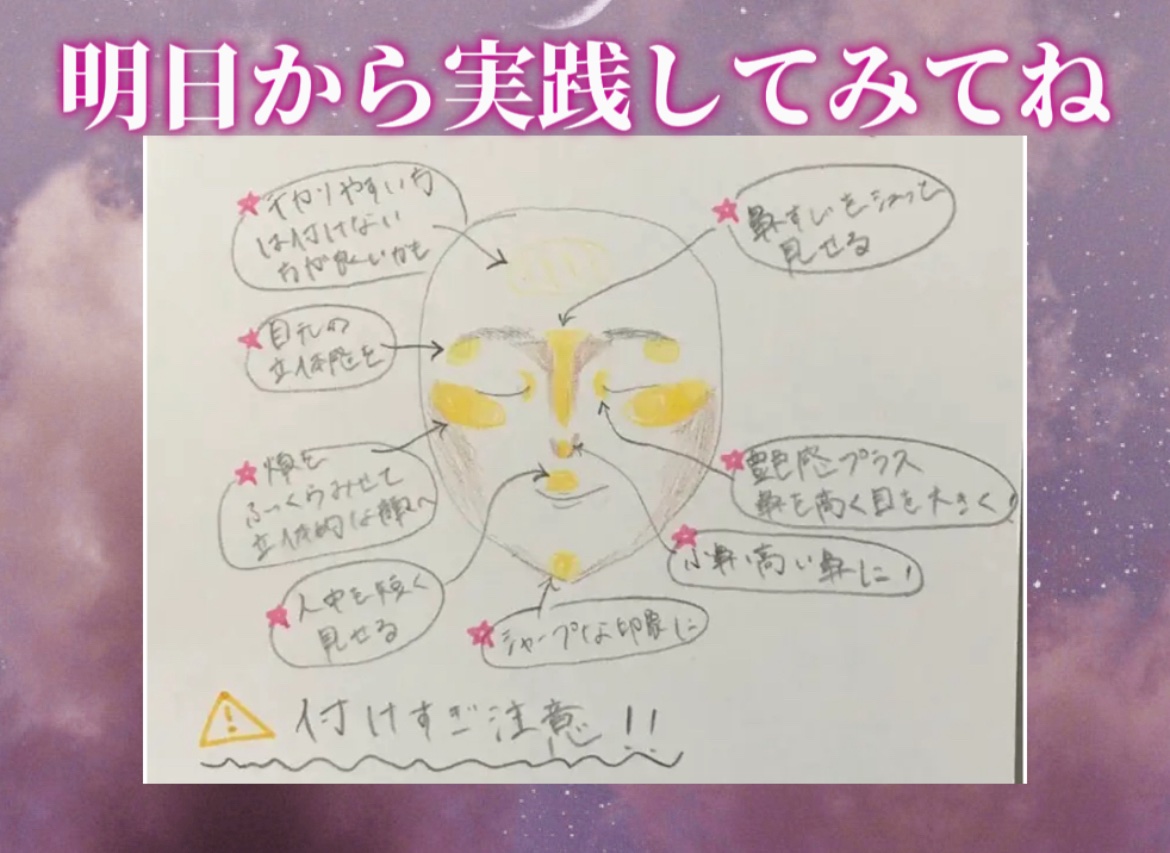 明日から実践してみてね
テカりやすい方
は付けない
方が良いかも
鼻すじをシュッと
見せる
目元の
立体感を
頬を
ふっくらみせて
立体的な顔へ
艶感プラス
鼻を高く目を大きく!
小鼻高い鼻に!
人中を短く
見せる
シャープな印象に
付けすぎ注意!!